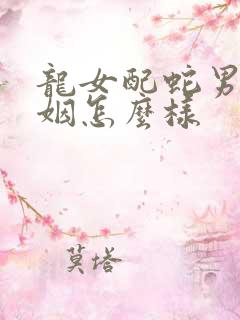 龍女配蛇男
姻怎麼樣
莫塔